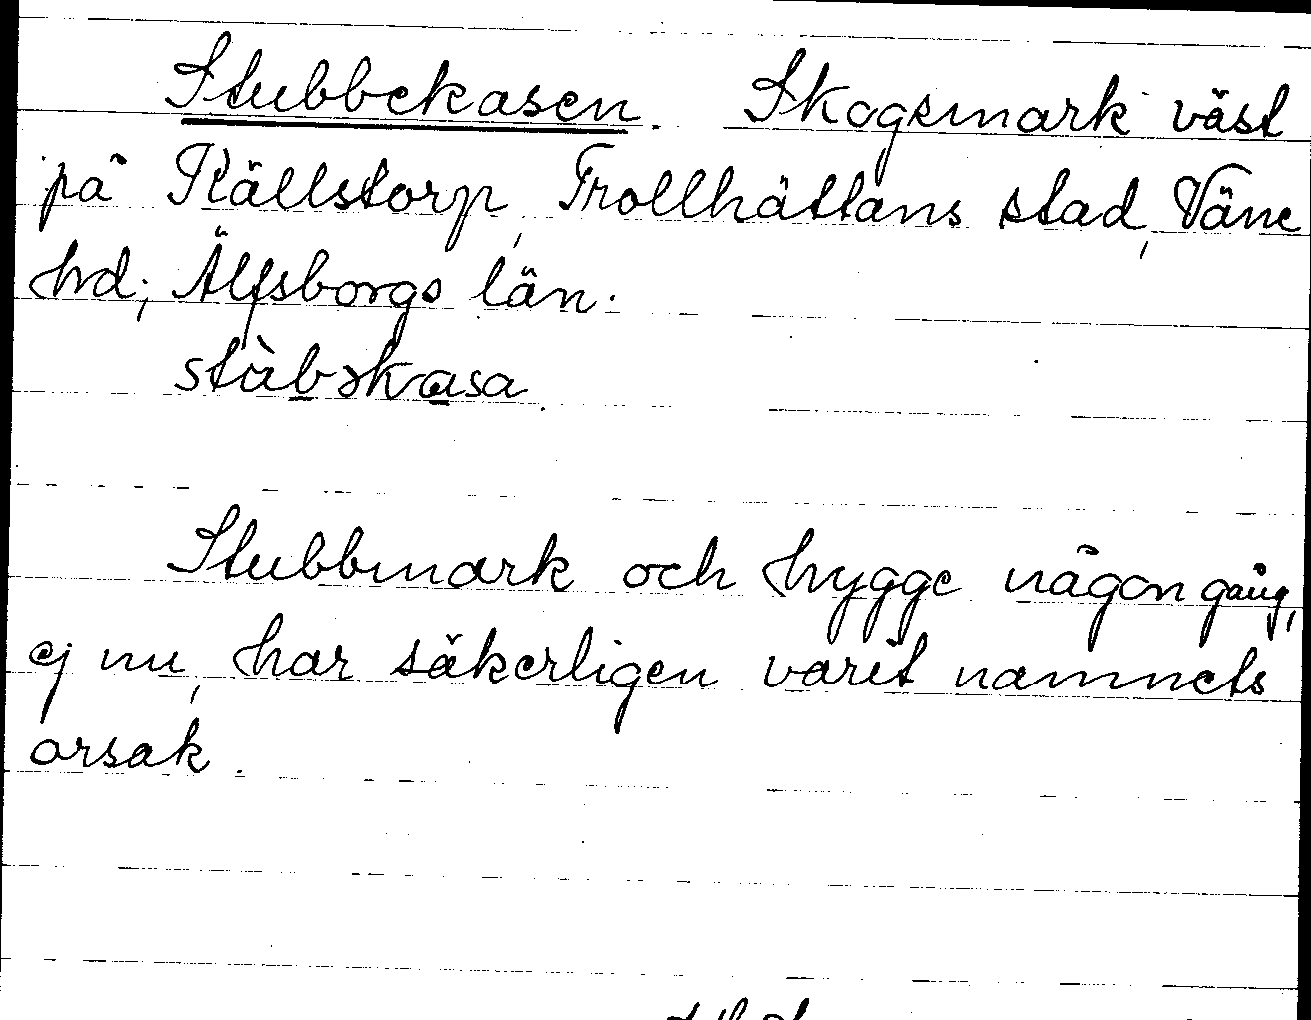 Stubbekasen. Skogsmark väst
på Källstorp, Trollhättans stad, Väne
hd; Älfsborgs län.
stàbəkasa.
Stubbmark och hygge någon gång,
ej nu, har säkerligen varit namnets
orsak.